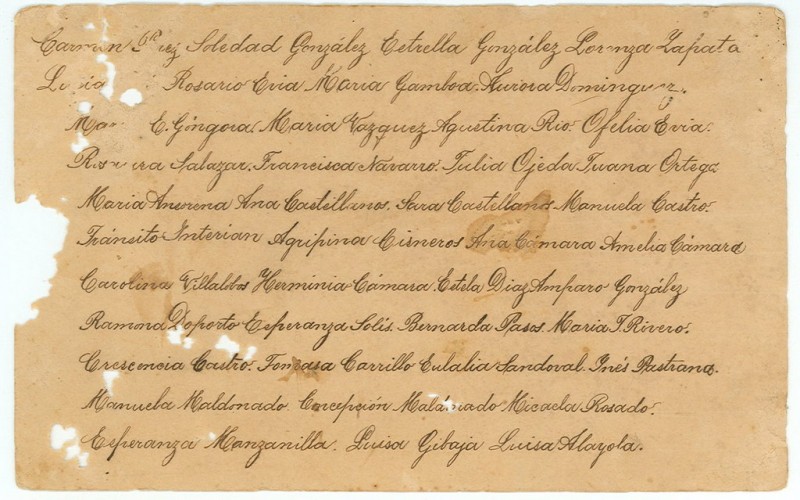 Carmen Soledad González Estrella González Lorenza Zapata
Rosario Evia Maria Gamboa. Aurora Dominguez.
E. Góngora. Maria Vazquez Agustina Rio. Ofelia Evia.
Salazar. Francisca Navarro. Julia Ojeda. Juana Ortega
Maria Ancona Ana Castillanos. Sara Castellanos Manuela Castro.
Tránsito Interian Agripina Cisneros Ana Cámara Amelia Cámara
Carolina Villalobos Herminia Cámara. Estela Diaz Amparo González
Ramona Doporto Esperanza Solís. Bernarda Pasos. Maria T. Rivero.
Crescencia Castro. Tomasa Carrillo Eulalia Sandoval. Inés Pastrana.
Manuela Maldonado. Concepción Micaela Rosado.
Esperanza Manzanilla. Luisa Gibaja Luisa Alayola.